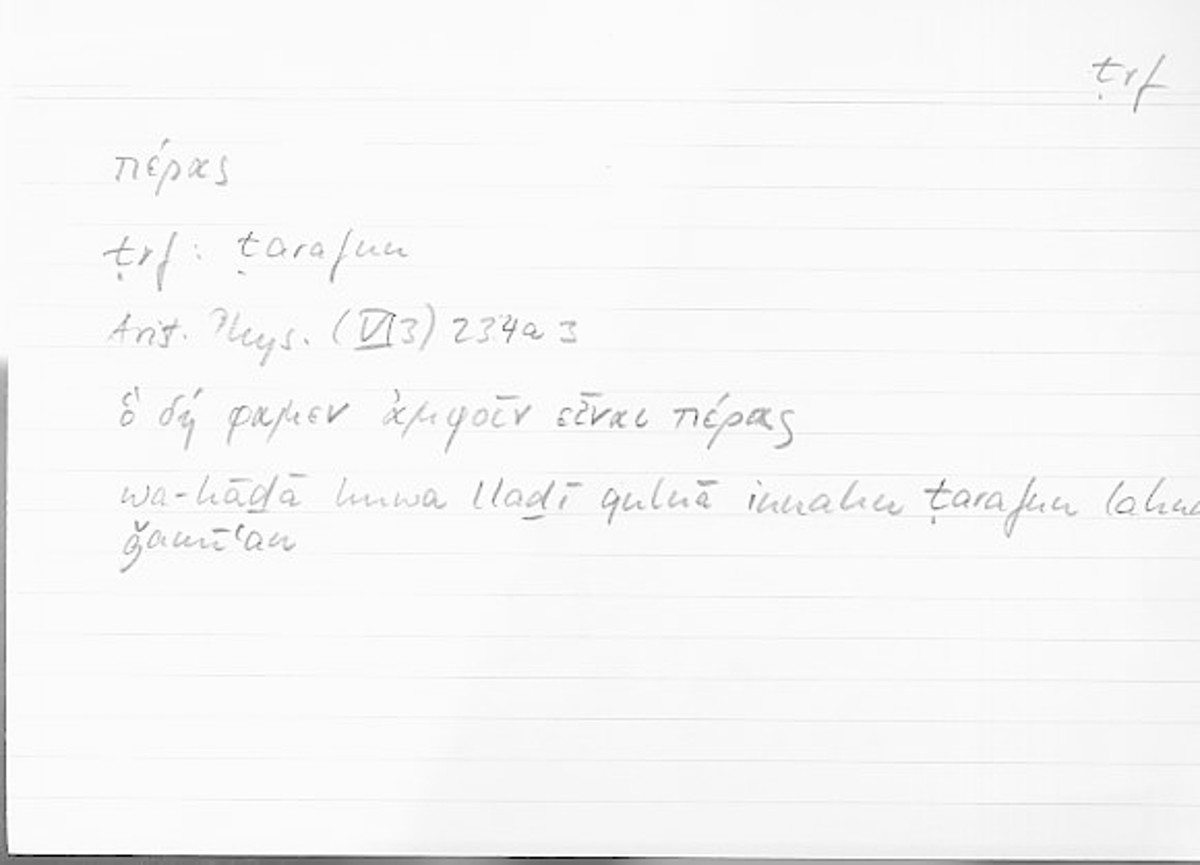 ṭrf
πέρας
ṭrf: ṭarafun
Arist. Phys. (VI 3) 234a 3
ὃ δή φαμεν ἀμφοῖν εἶναι πέρας
wa-hāḏā huwa llaḏī qulnā innahu ṭarafun
ǧamīʿan